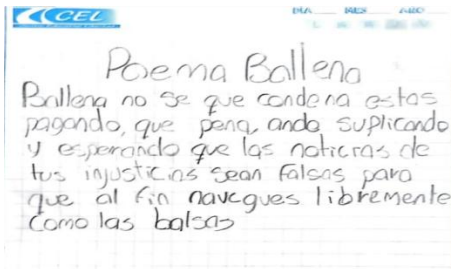 CEL
DIA MES AÑO
Poema Ballena
Ballena no se que condena estas
pagando, que pena, ando suplicando
y esperando que las noticias de
tus injusticias sean falsas para
que al fin navegues libremente
como las balsas